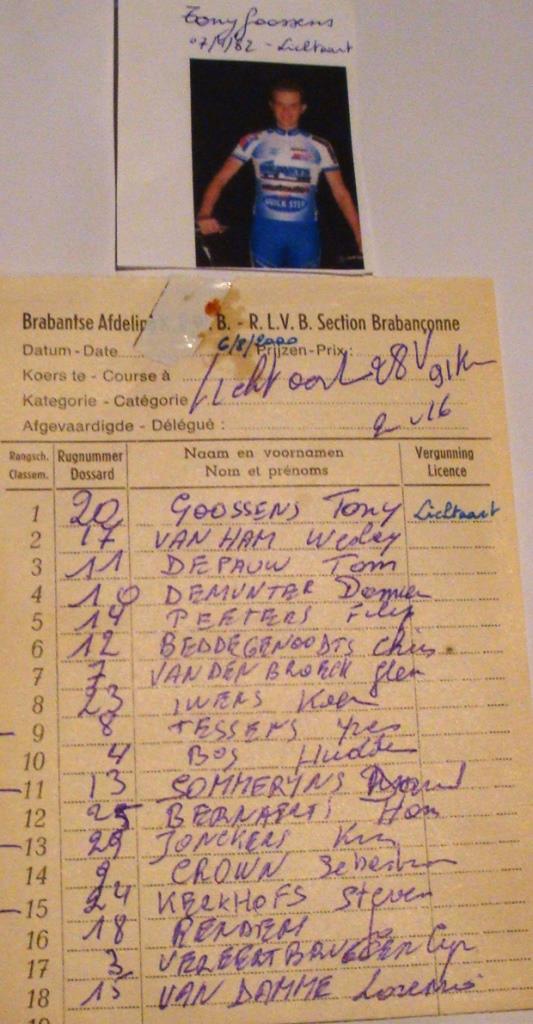 Tony Goossens
07/ /82 - Lichtaart
QUICK STEP
Brabantse Afdelin B. - R.L.V.B. Section Brabançonne
Datum - Date 6/8/2000 Prijzen - Prix :
Koers te - Course à Lichtaart 28 91 km
Kategorie - Catégorie
Afgevaardigde - Délégué : 16
Rangsch. Classem. Rugnummer Dossard Naam en voornamen Nom et prénoms Vergunning Licence
1 20 GOOSSENS Tony Lichtaart
2 17 VAN HAM Wesley
3 11 DEPAUW Tom
4 10 DEMUNTER Damien
5 14 PEETERS Filip
6 12 BEDDEGENOODTS Chris
7 7 VANDENBROECK Glen
8 23 IWENS Koen
9 8 TESSENS Yves
10 4 BOS
11 13 SOMMERYNS
12 25 BERNAERTS Hans
13 29 JONCKERS Kris
14 9 CROWN Sebastian
15 24 KERKHOFS Steven
16 18
17 3 VEREERTBRUGGEN
18 15 VAN DAMME Lorenzo